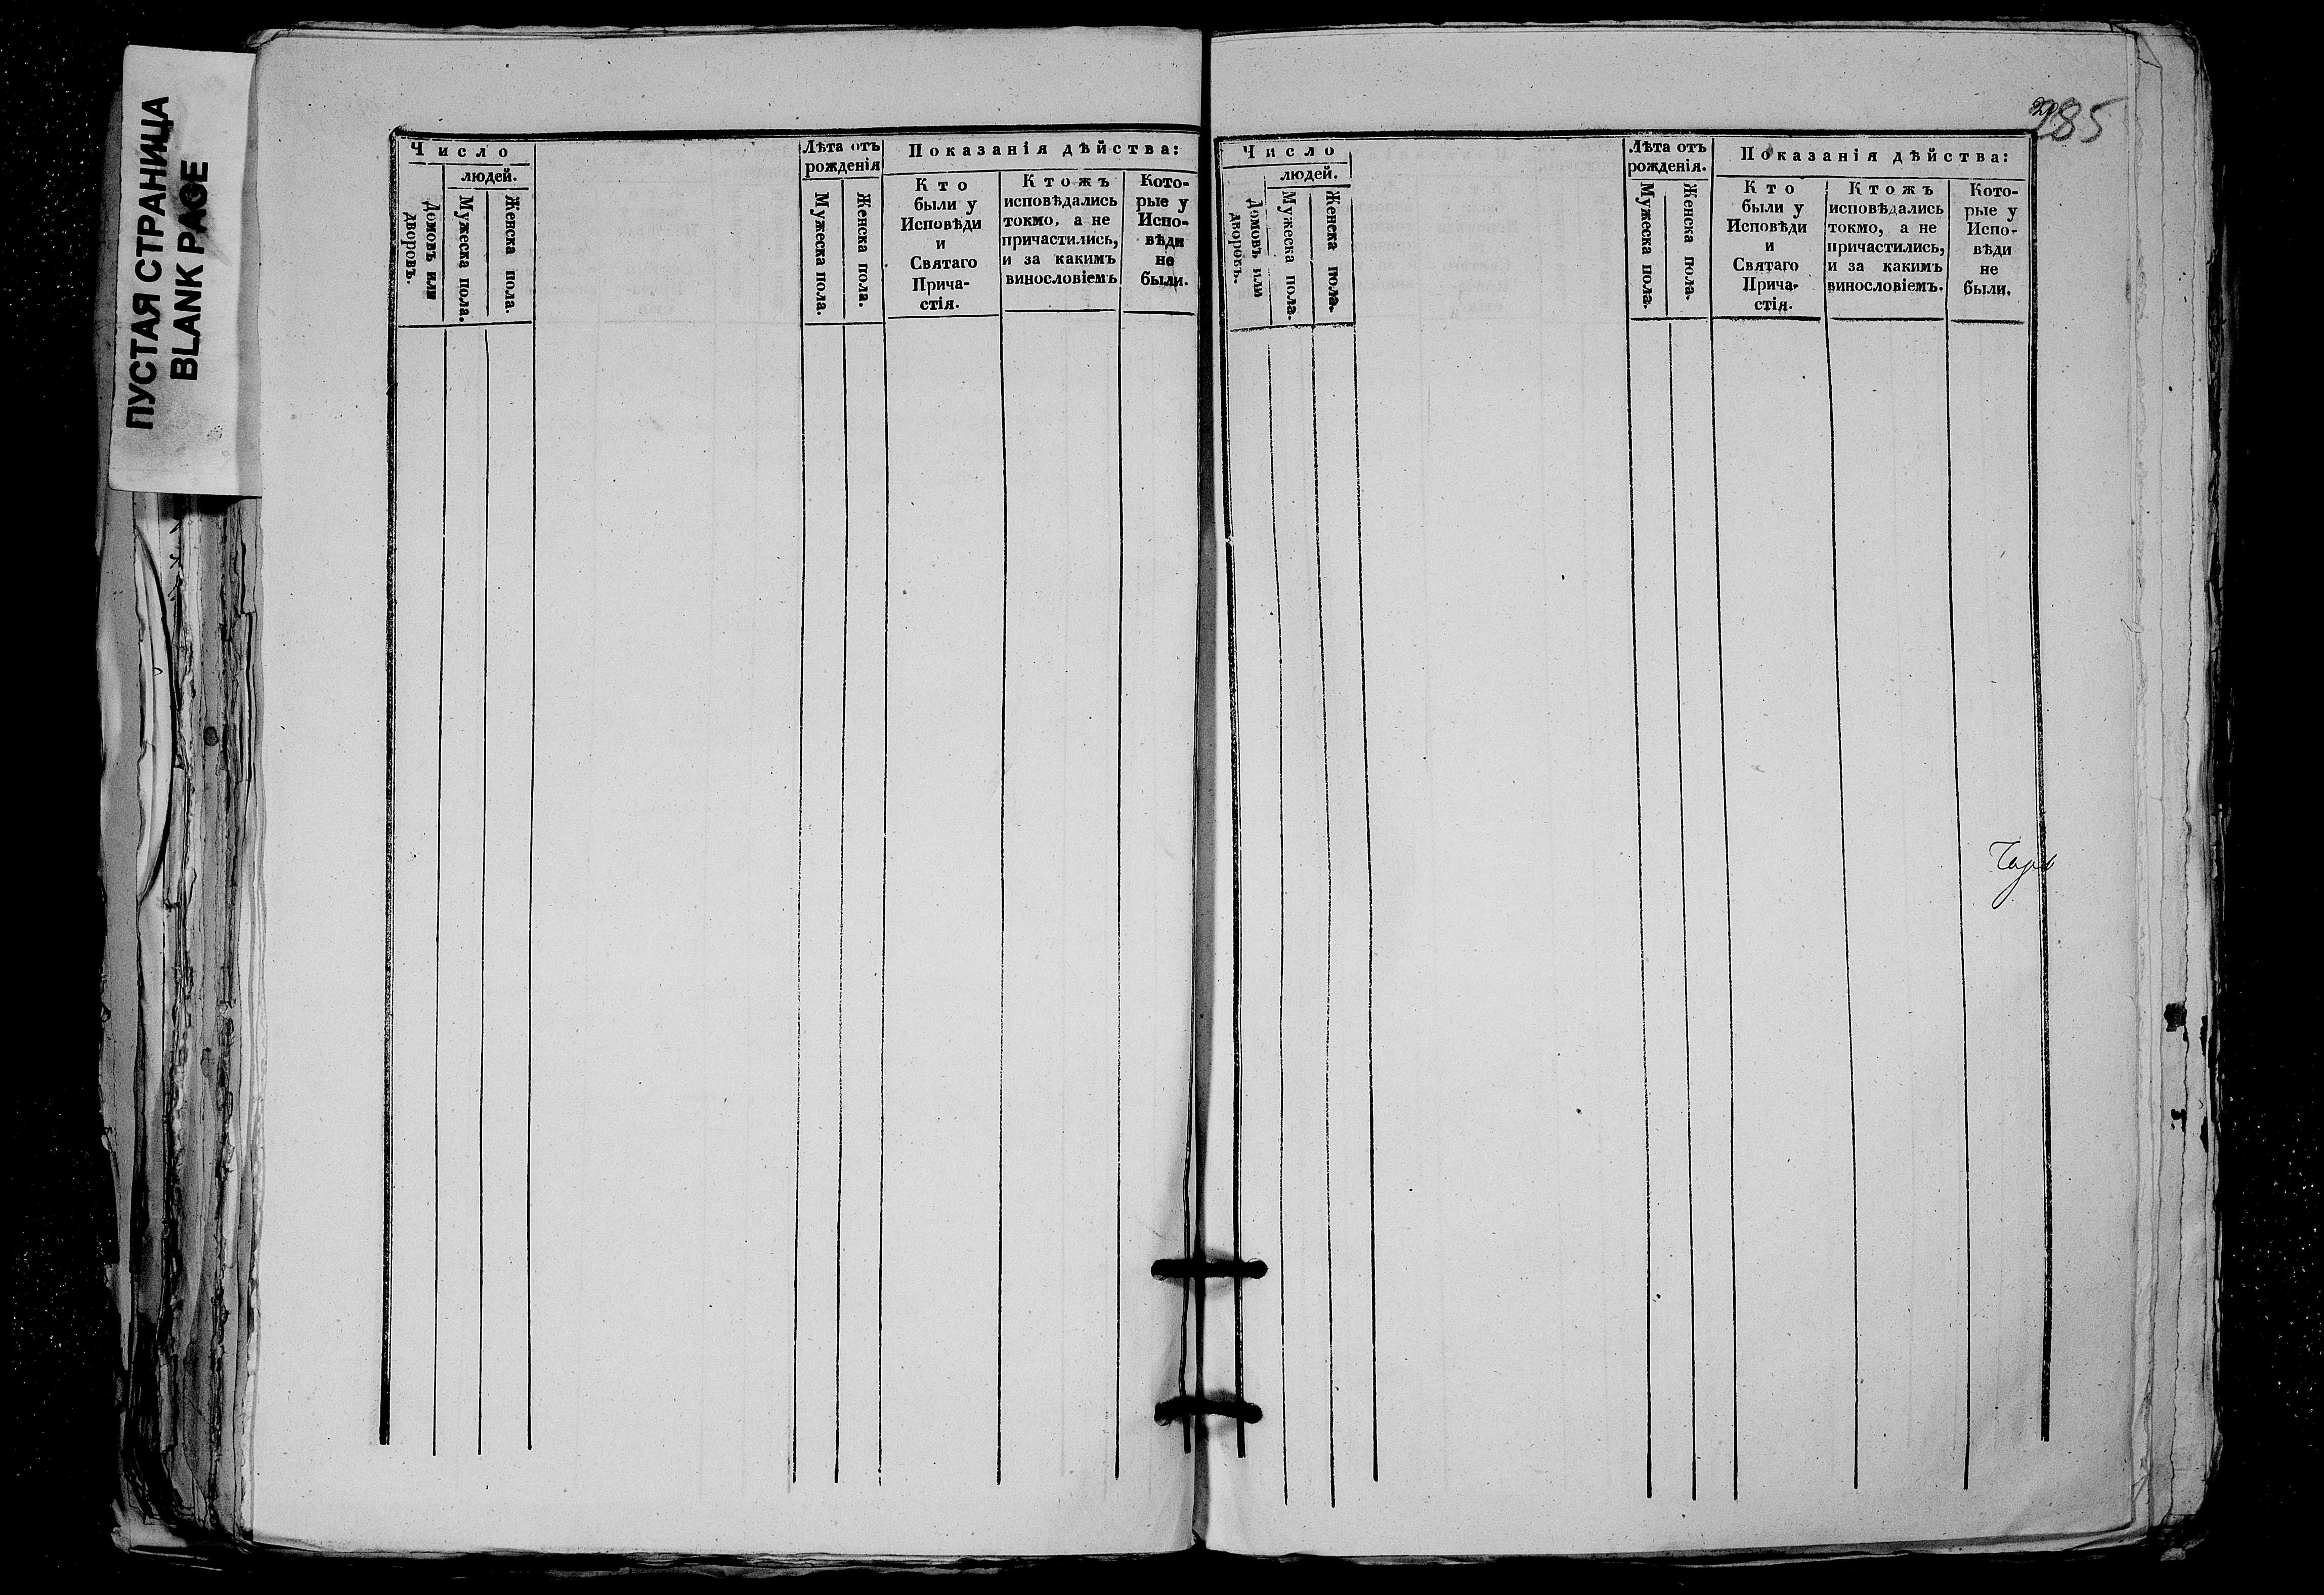 ПУСТАЯ СТРАНИЦА
BLANK PAGE
Число
людей.
Домовъ или дворовъ.
Мужеска пола.
Женска пола.
Лѣта отъ
рожденія
Мужеска пола.
Женска пола.
Показанія дѣйства:
Кто
были у
Исповѣди
и
Святаго
Прича-
стія.
Ктожъ
исповѣдались
токмо, а не
причастились,
и за какимъ
винословіемъ
Кото-
рые у
Испо-
вѣди
не
были.
285
Число
людей.
Домовъ или дворовъ.
Мужеска пола.
Женска пола.
Лѣта отъ
рожденія.
Мужеска пола.
Женска пола.
Показанія дѣйства:
Кто
были у
Исповѣди
и
Святаго
Прича-
стія.
Ктожъ
исповѣдались
токмо, а не
причастились,
и за какимъ
винословіемъ.
Кото-
рые у
Испо-
вѣди
не
были.